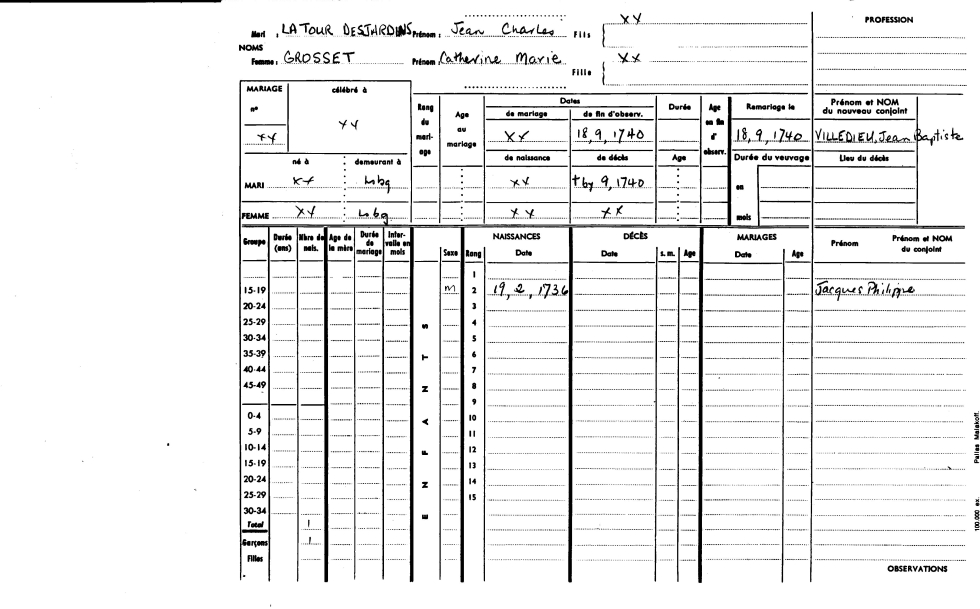 XX PROFESSION
Mari : LA TOUR DESJARDINS Prénom : Jean Charles Fils
NOMS
Femme : GROSSET Prénom Catherine Marie XX
Fille
MARIAGE célébré à
nº
XX XX
Rang du mariage Age au mariage Dates Durée Age en fin d'observ. Remariage le Prénom et NOM du nouveau conjoint
de mariage de fin d'observ.
XX 18,9,1740 18,9,1740 VILLEDIEU, Jean Baptiste
né à demeurant à de naissance de décès Age Durée du veuvage Lieu du décès
MARI XX Lobg XX † by 9,1740 en
FEMME XX Lobg XX XX mois
Groupe Durée (ans) Nbre de nais. Age de la mère Durée de mariage Intervalle en mois ENFANTS Sexe Rang NAISSANCES Date DÉCÈS Date s. m. Age MARIAGES Date Age Prénom Prénom et NOM du conjoint
1
15-19 M 2 19,2,1736 Jacques Philippe
20-24 3
25-29 4
30-34 5
35-39 6
40-44 7
45-49 8
9
0-4 10
5-9 11
10-14 12
15-19 13
20-24 14
25-29 15
30-34
Total 1
Garçons 1
Filles
OBSERVATIONS
100.000 ex. Pallas Malakoff.